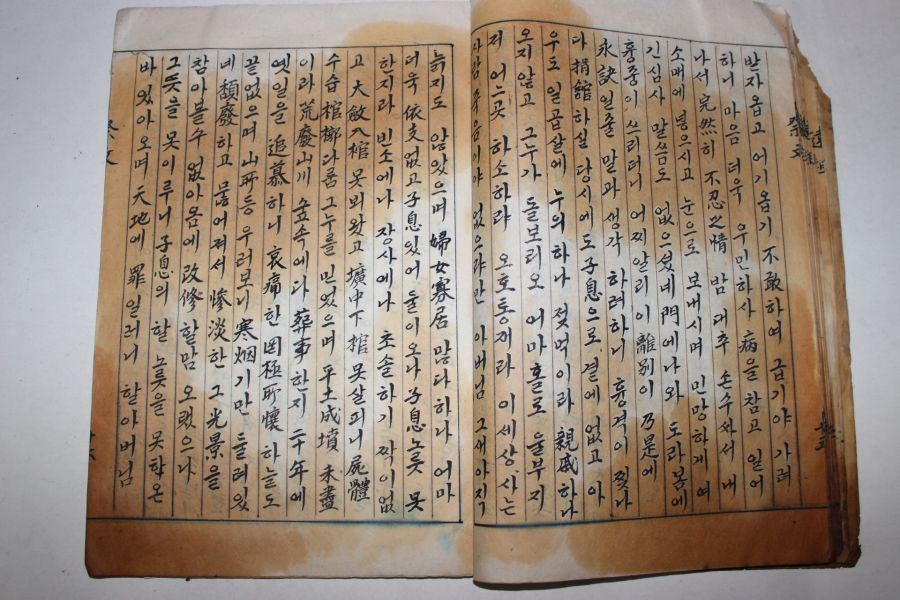 받자옵고 어기옵기 不敢하여 급기야 가려
하니 마음 더욱 우민하사 病을 참고 일어
나서 完然히 不忍之情 밤 대추 손수 와서 내
소매에 넣으시고 눈으로 보내시며 민망하게 여
긴 심사 말씀도 없으셨네 門에 나와 도라봄에
흉중이 쓰리더니 어찌 알리 이 離別이 乃是에
永訣일줄 말과 생각 하려하니 흉격이 찢난
다 捐館하실 당시에도 子息으로 곁에 없고 아
우도 일곱살에 누의 하나 젖먹이라 親戚 하나
오지 않고 그 누가 돌보리오 어마 홀로 울부지
저 어는곳 하소하랴 오호통재라 이 세상 사는
사람 죽음이야 없으랴만 아버님 그 새 아직
늙지도 않았으며 婦女寡居 많다하나 어마
더욱 依支 없고 子息 있어 둘이오나 子息노릇 못
한지라 빈소에나 장사에나 초솔하기 짝이 없
고 大斂入棺 못 뵈왔고 壙中下棺 못 살피니 屍體
수습 棺槨다룸 그 누를 믿었으며 平土成墳 未盡
이라 荒廢山川 숲속에다 葬事한지 二十年에
옛일을 追慕하니 哀痛한 罔極所懷 하늘도
끝없으며 山所등 우러보니 寒烟기만 들려있
네 頹廢하고 묺어져서 慘淡한 그 光景을
참아 볼수 없아옴에 改修할 맘 오랬으나
그 뜻을 못이루니 子息의 할 노릇을 못학온
바 있아오며 天地에 罪일러니 할아버님
祭文